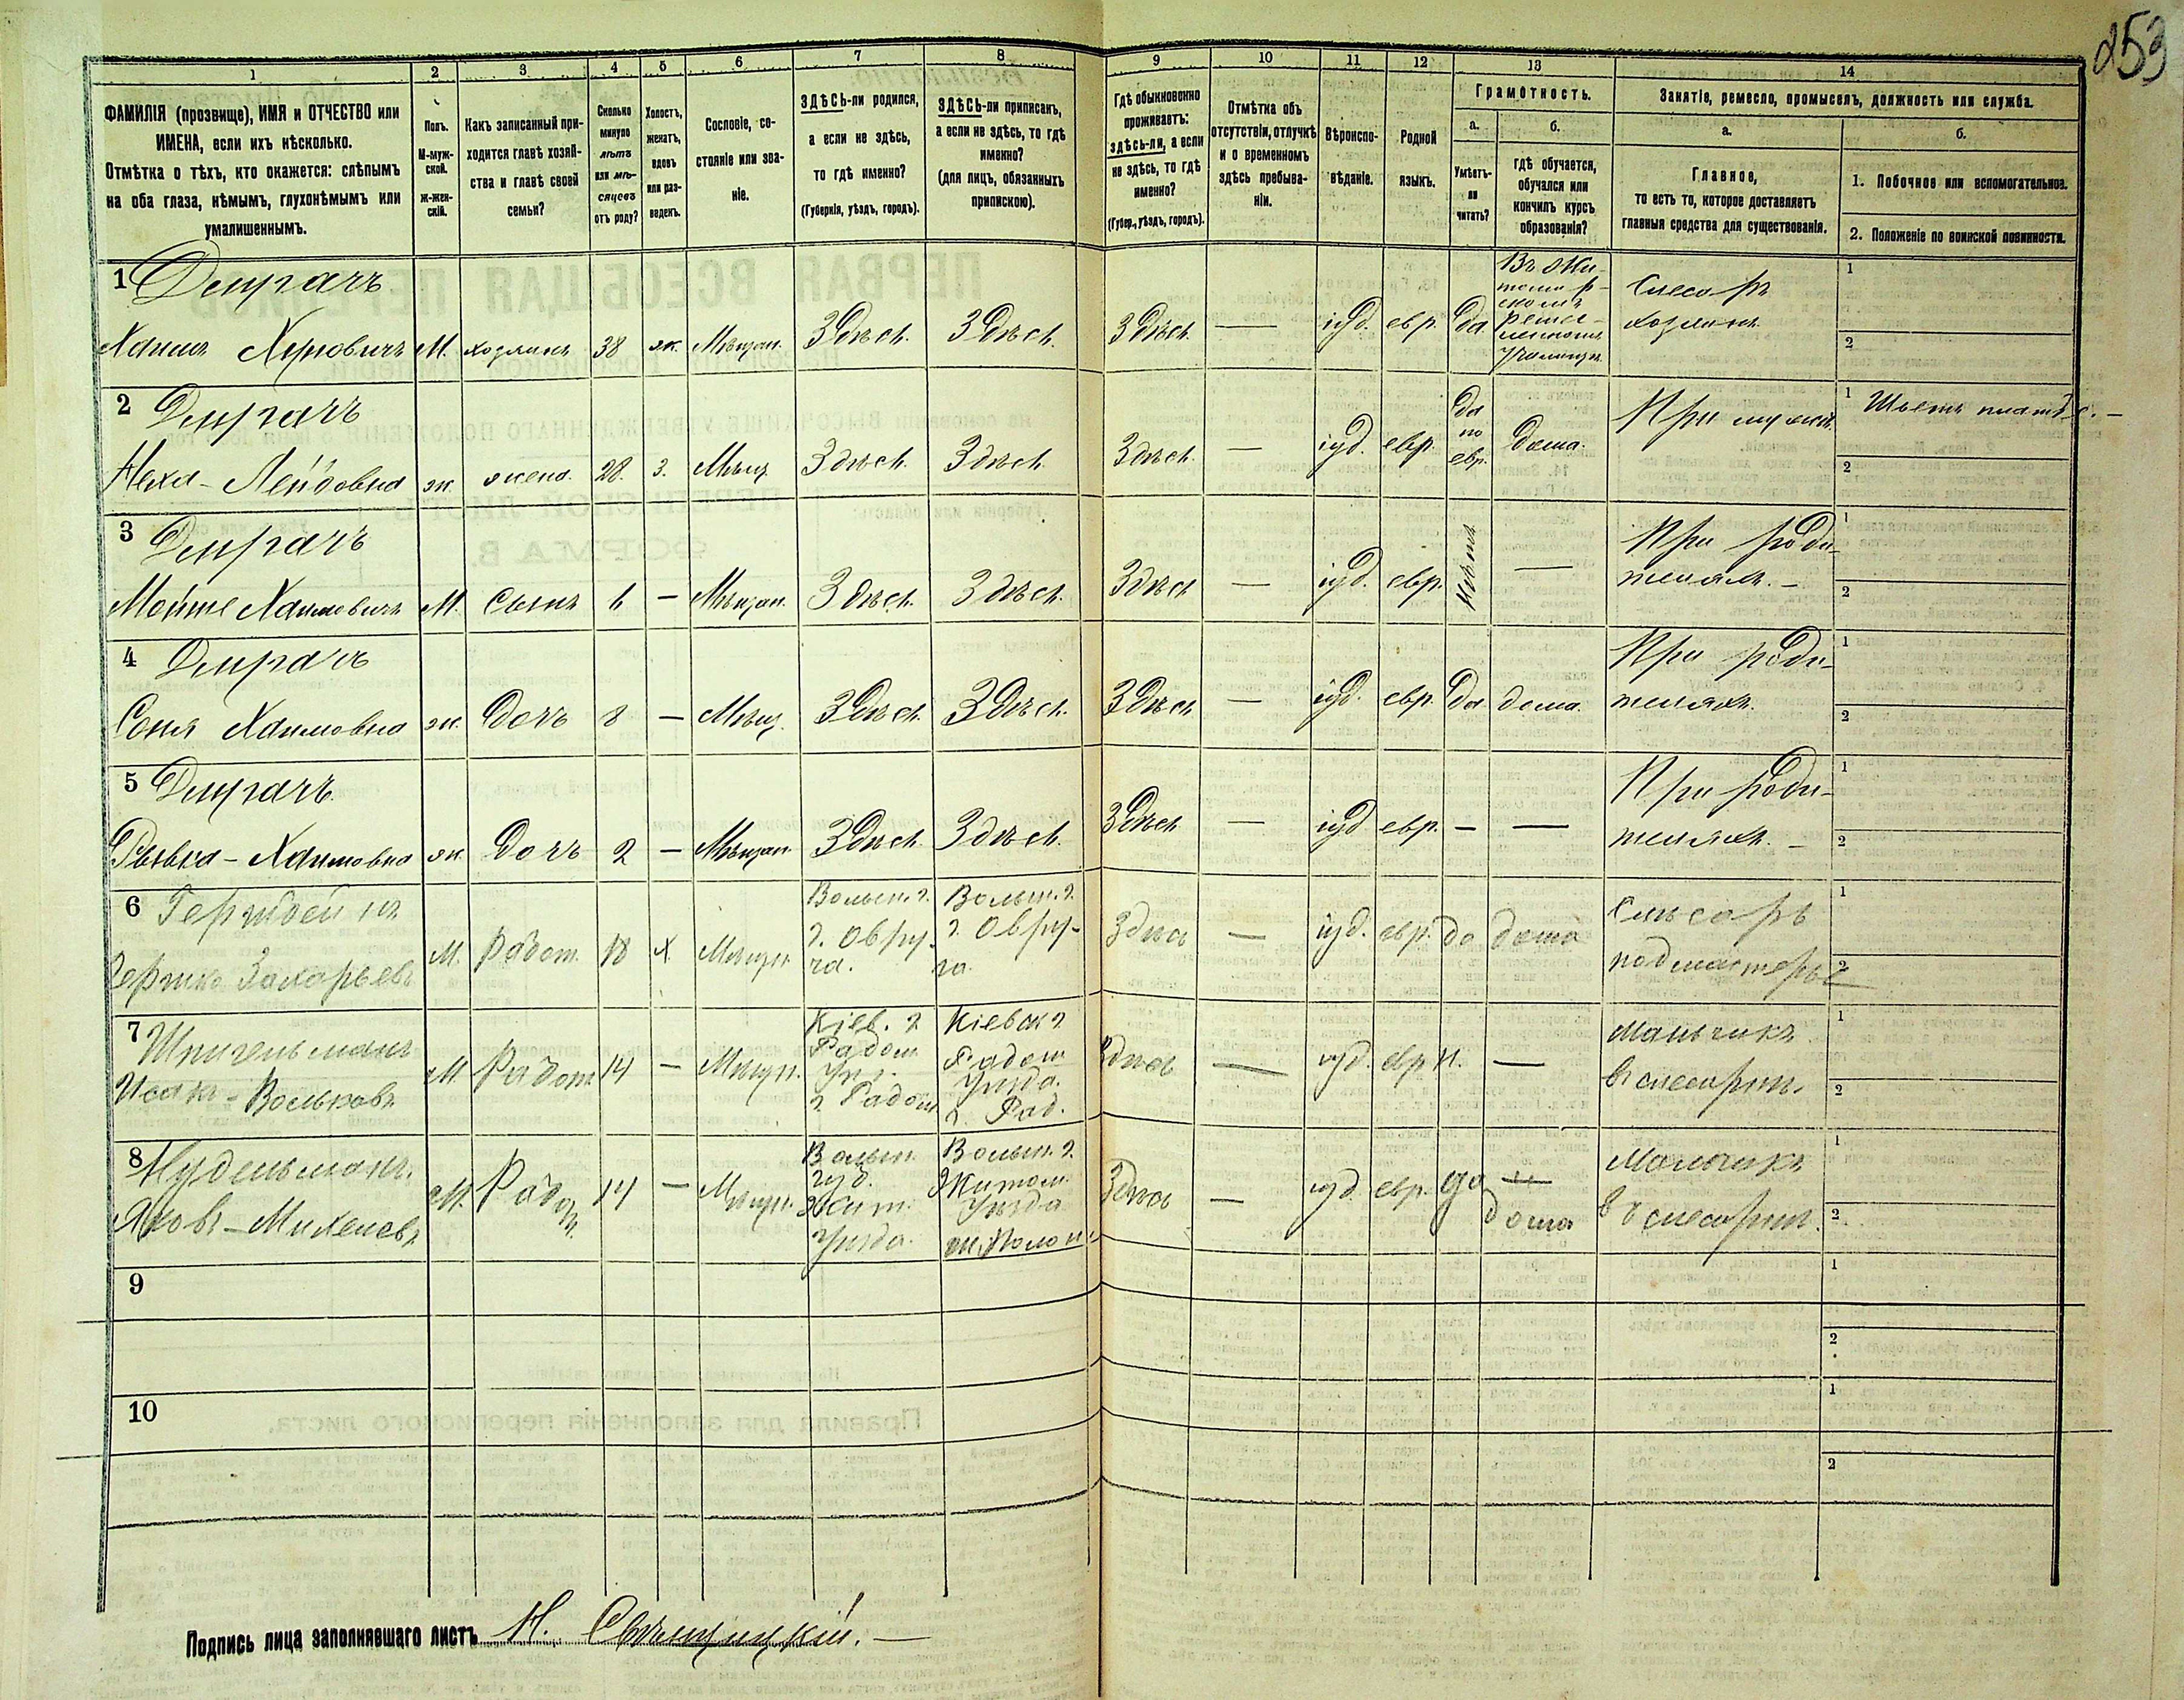 253
1 2 3 4 5 6 7 8 9 10 11 12 13 14
ФАМИЛІЯ (прозвище), ИМЯ и ОТЧЕСТВО или
ИМЕНА, если ихъ нѣсколько.
Отмѣтка о тѣхъ, кто окажется: слѣпымъ
на оба глаза, нѣмымъ, глухонѣмымъ или
умалишеннымъ.
Полъ.
М-муж-
ской.
ж-жен-
скій.
Какъ записанный при-
ходится главѣ хозяй-
ства и главѣ своей
семьи?
Сколько
минуло
лѣтъ
или мѣ-
сяцевъ
отъ роду?
Холостъ,
женатъ,
вдовъ
или раз-
веденъ.
Сословіе, со-
стояніе или зва-
ніе.
ЗДѢСЬ-ли родился,
а если не здѣсь,
то гдѣ именно?
(Губернія, уѣздъ, городъ).
ЗДѢСЬ-ли приписанъ,
а если не здѣсь, то гдѣ
именно?
(для лицъ, обязанныхъ
припискою).
Гдѣ обыкновенно
проживаетъ:
здѣсь-ли, а если
не здѣсь, то гдѣ
именно?
(Губер., уѣздъ, городъ).
Отмѣтка объ
отсутствіи, отлучкѣ
и о временномъ
здѣсь пребыва-
ніи.
Вѣроиспо-
вѣданіе.
Родной
языкъ.
Грамотность.
а.
Умѣетъ-
ли
читать?
б.
гдѣ обучается,
обучался или
кончилъ курсъ
образованія?
Занятіе, ремесло, промыселъ, должность или служба.
а.
Главное,
то есть то, которое доставляетъ
главныя средства для существованія.
б.
1. Побочное или вспомогательное.
2. Положеніе по воинской повинности.
1 Демрачъ
Хаимъ М. хозяинъ 38 ж. Мѣщан. Здѣсь Здѣсь Здѣсь — іуд. евр. да
Въ Жи-
томир-
скомъ
ремес-
Слесарь
хозяинъ
1
2
2 Демрачъ
Лейбовна ж. жена 28 з. Мѣщ. Здѣсь Здѣсь Здѣсь — іуд. евр.
да
по
евр.
дома.
При мужѣ
1
2
3 Демрачъ
Хаимовичъ М. сынъ — Мѣщан. Здѣсь Здѣсь Здѣсь — іуд. евр. Нѣтъ —
При роди-
теляхъ. —
1
2
4 Демрачъ
Соня Хаимовна ж. дочь 8 — Мѣщ. Здѣсь Здѣсь Здѣсь — іуд. евр. да дома.
При роди-
теляхъ.
1
2
5 Демрачъ
Рывка - Хаимовна ж. дочь 2 — Мѣщан. Здѣсь Здѣсь Здѣсь — іуд. евр. — —
При роди-
теляхъ. —
1
2
6
Захарьевъ М. Работ. 18 х. Мѣщан.
Волын. г.
г. Овру-
ча.
Волын. г.
г. Овру-
ча.
Здѣсь — іуд. евр. да дома
Слесарь
подмастерье
1
2
7 Шпигельманъ
Исакъ - Вольковъ М. Работ. 14 — Мѣщ.
Кіев. г.
Радом.
г. Радом.
Кіевск. г.
Радом.
Уѣзда.
г. Рад.
Здѣсь — іуд. евр. Н. —
Мальчикъ
въ слесарни.
1
2
8 Нудельманъ.
М. Работн. 14 — Мѣщан.
Волын.
губ.
Жит.
Уѣзда.
Волын. г.
Житом.
Уѣзда
Здѣсь — іуд. евр. да
дома
Мальчикъ
въ слесарни.
1
2
9
1
2
10
1
2
Подпись лица заполнявшаго листъ Н. —